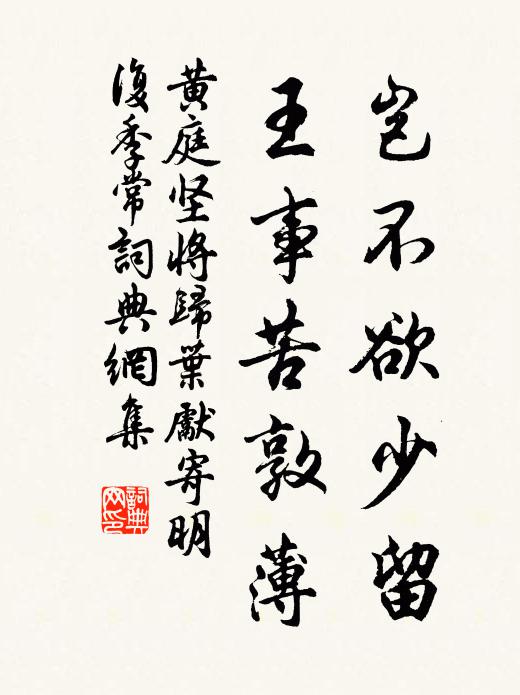 岂不欲少留
王事苦敦薄
黄庭坚将歸葉獻寄明
復季常詞典網集
詞典
网印